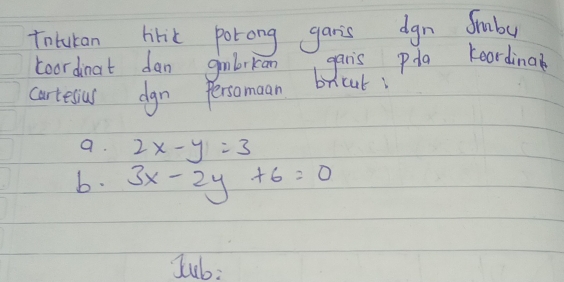 Tntukan titik potong garis dgn Smbu
koordinat dan gmbrkan garis pda koordinat
cartesius dgn Persamaan brikut :
a. 2x - y = 3
b. 3x - 2y + 6 = 0
Jwb: